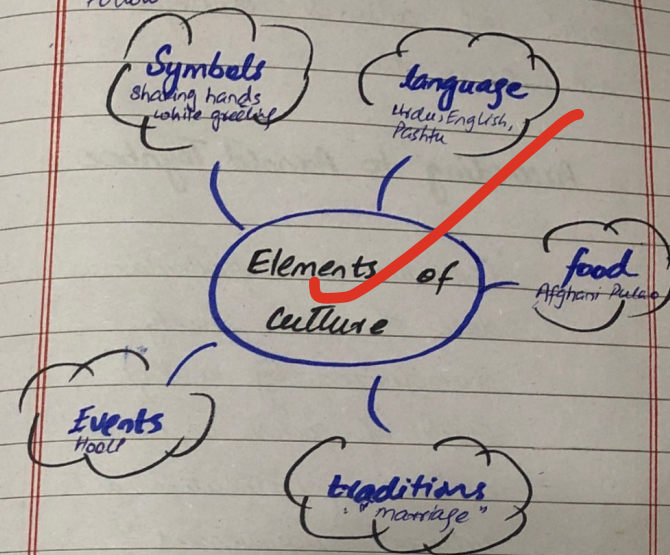 Symbols
Shaking hands
while greeting
language
Urdu, English,
Pashtu
Elements of
culture
food
Afghani Pulao
Events
traditions
"marriage"